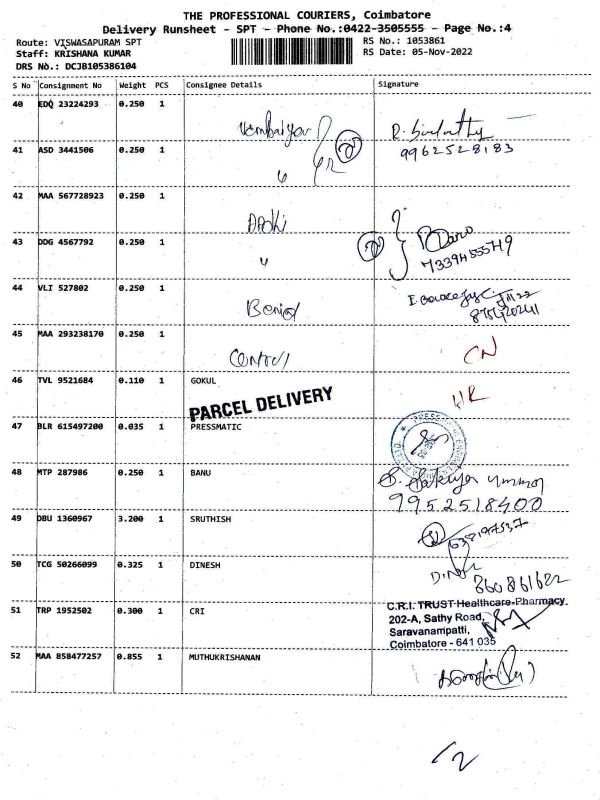 THE PROFESSIONAL COURIERS, Coimbatore
Delivery Runsheet - SPT - Phone No.:0422-3505555 - Page No.:4
Route: VISWASAPURAM SPT
RS No.: 1053861
Staff: KRISHANA KUMAR
RS Date: 05-Nov-2022
DRS No.: DCJB105386104
S No Consignment No Weight PCS Consignee Details Signature
40 EDQ 23224293 0.250 1
9962528183
41 ASD 3441506 0.250 1
42 MAA 567728923 0.250 1
43 DDG 4567792 0.250 1
44 VLI 527802 0.250 1
45 MAA 293238170 0.250 1
Control CN
46 TVL 9521684 0.110 1 GOKUL
HR
PARCEL DELIVERY
47 BLR 615497200 0.035 1 PRESSMATIC
48 MTP 287986 0.250 1 BANU
9952518400
49 DBU 1360967 3.200 1 SRUTHISH
50 TCG 50266099 0.325 1 DINESH
51 TRP 1952502 0.300 1 CRI
C.R.I. TRUST Healthcare-Pharmacy
202-A, Sathy Road,
Saravanampatti,
Coimbatore - 641 035
52 MAA 858477257 0.855 1 MUTHUKRISHANAN
12